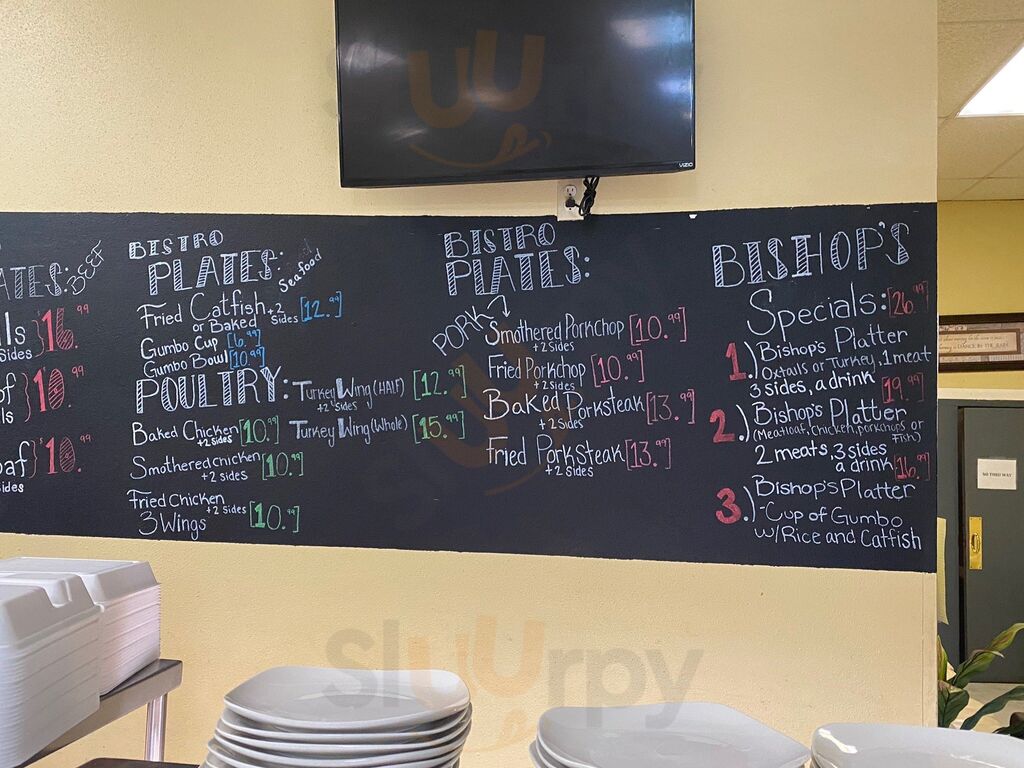 VIZIO
BEEF
16.99
Sides
10.99
10.99
BISTRO
PLATES:
Seafood
Fried Catfish +2 Sides [12.99]
or Baked
Gumbo Cup [6.99]
Gumbo Bowl [10.99]
POULTRY:
Turkey Wing (HALF) [12.99]
+2 Sides
Baked Chicken [10.99]
+2 Sides
Turkey Wing (Whole) [15.99]
Smothered chicken [10.99]
+2 Sides
Fried Chicken +2 Sides [10.99]
3 Wings
BISTRO
PLATES:
PORK
Smothered Porkchop [10.99]
+2 Sides
Fried Porkchop [10.99]
+2 Sides
Baked Porksteak [13.99]
+2 Sides
Fried Porksteak [13.99]
+2 Sides
BISHOP'S
Specials: [26.99]
1.) Bishop's Platter
Oxtails or Turkey, 1 meat
3 sides, a drink [19.99]
2.) Bishop's Platter
(Meatloaf, chicken, porkchops or Fish)
2 meats, 3 sides
a drink [16.99]
3.) Bishop's Platter
-Cup of Gumbo
w/Rice and Catfish
DANCE IN THE RAIN
Sluurpy